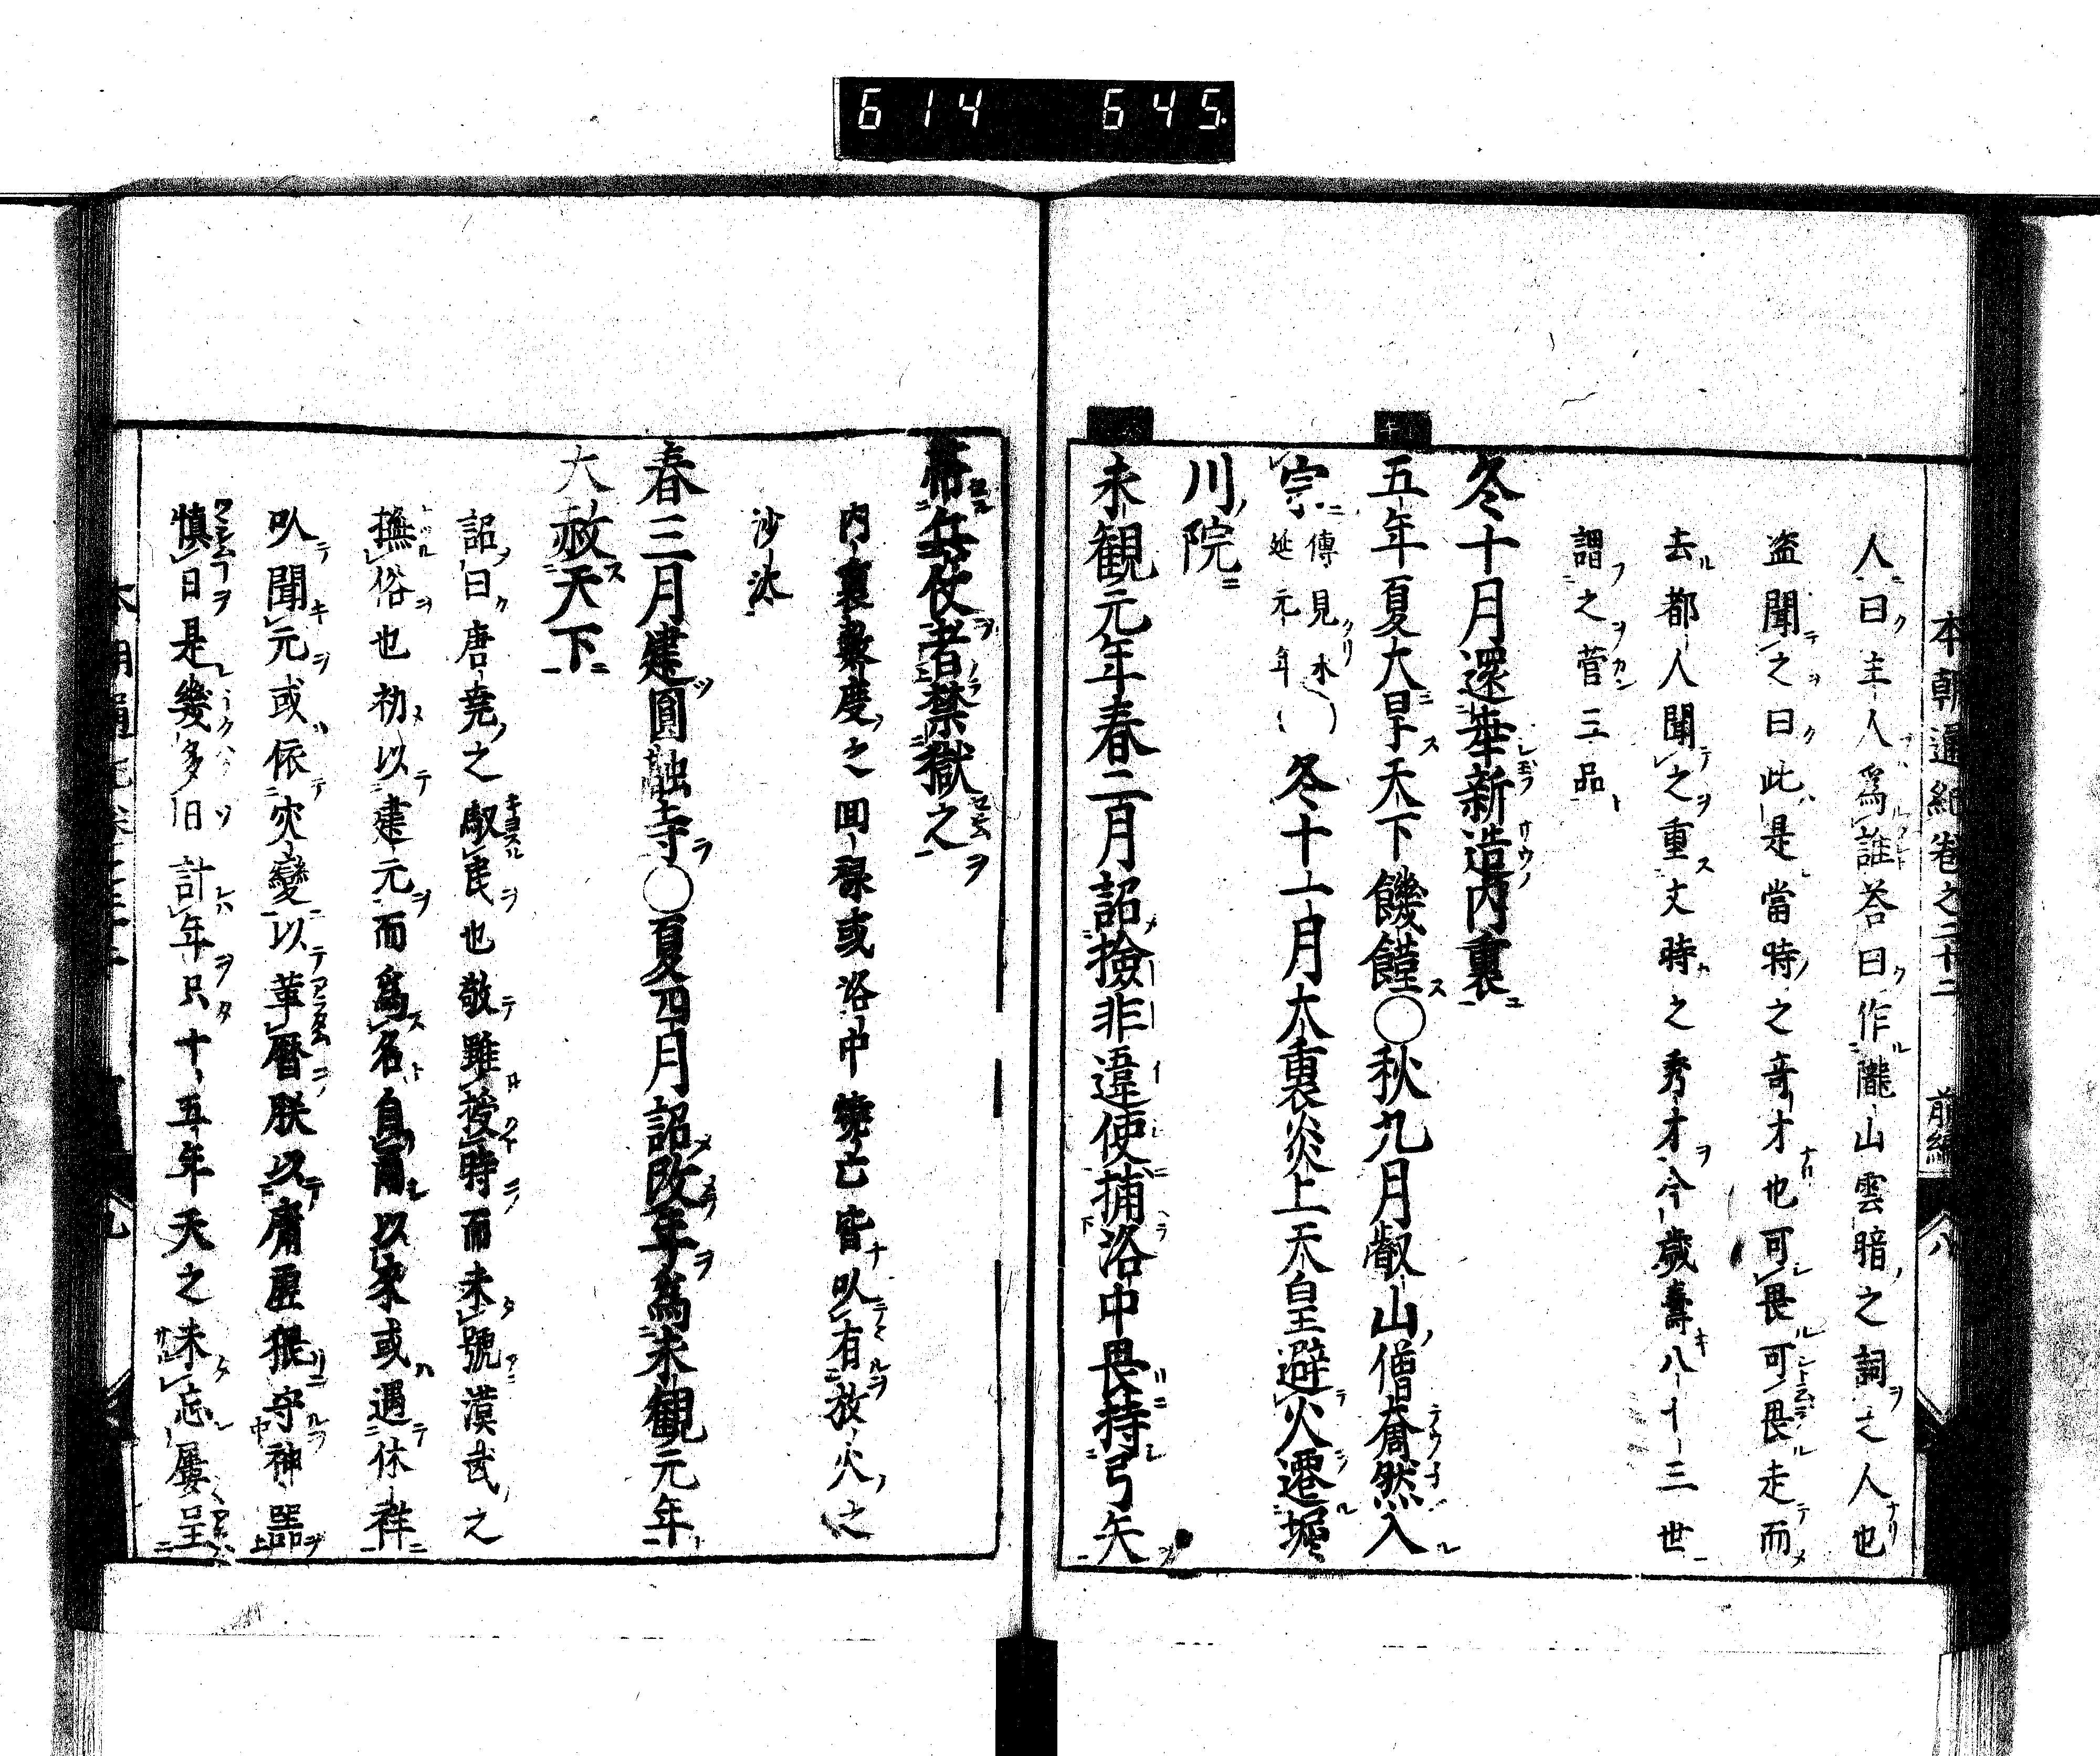 614 645
本朝通紀卷之二十二 前編 八
人曰主人爲誰荅曰作隴山雲暗之詞之人也
盗聞之曰此是當時之竒才也可畏可畏走而
去都人聞之重文時之秀才今歳壽八十三世
謂之菅三品
冬十月還幸新造内裏
五年夏大旱天下饑饉○秋九月叡山僧奝然入
宗 傳見水 延元年 冬十一月大裏炎上天皇避火遷堀
川院
永観元年春二月詔撿非違使捕洛中畏持弓矢
兵仗者禁獄之
内裏數度之回禄或洛中燒亡皆以有放火之
沙汰
春三月建圓融寺○夏四月詔改年爲永観元年
大赦天下
詔曰唐尭之馭民也敬雖授時而未號漢武之
撫俗也初以建元而爲名自爾以來或遇休祥
以聞元或依灾變以革暦朕以庸虚猥守神器
慎日是幾多日計年只十五年天之未忘屢呈